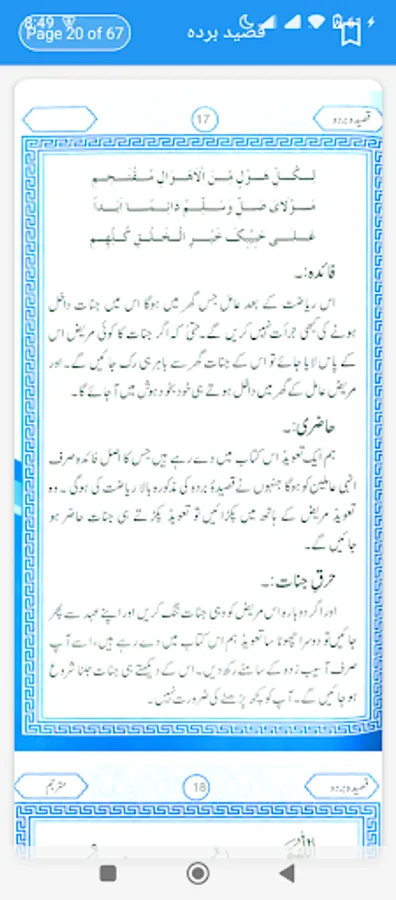 8:49
Page 20 of 67
قصیدہ بردہ
61
17
قصیدہ بردہ
لِكُلِّ هَوْلٍ مِّنَ الْاَهْوَالِ مُقْتَحِمِ
مَوْلَاىَ صَلِّ وَسَلِّمْ دَائِمًا اَبَدًا
عَلٰى حَبِيْبِكَ خَيْرِ الْخَلْقِ كُلِّهِمِ
فائدہ:۔
اس ریاضت کے بعد عامل جس گھر میں ہوگا اس میں جنات داخل
ہونے کی کبھی جرأت نہیں کریں گے۔ حتیٰ کہ اگر جنات کا کوئی مریض اس
کے پاس لایا جائے تو اس کے جنات گھر سے باہر ہی رک جائیں گے۔ اور
مریض عامل کے گھر میں داخل ہوتے ہی خود بخود ہوش میں آ جائے گا۔
حاضری:۔
ہم ایک تعویذ اس کتاب میں دے رہے ہیں جس کا اصل فائدہ صرف
انہی عاملین کو ہوگا جنہوں نے قصیدۂ بردہ کی مذکورہ بالا ریاضت کی ہوگی۔ وہ
تعویذ مریض کے ہاتھ میں پکڑائیں تو تعویذ پکڑتے ہی جنات حاضر ہو
جائیں گے۔
حرقِ جنات:۔
اور اگر دوبارہ اس مریض کو وہی جنات تنگ کریں اور اپنے عہد سے پھر
جائیں تو دوسرا چھوٹا سا تعویذ ہم اس کتاب میں دے رہے ہیں، اسے آپ
صرف آسیب زدہ کے سامنے رکھ دیں۔ اس کے دیکھتے ہی جنات جلنا شروع
ہو جائیں گے۔ آپ کو کچھ پڑھنے کی ضرورت نہیں۔
قصیدہ بردہ
18
مترجم